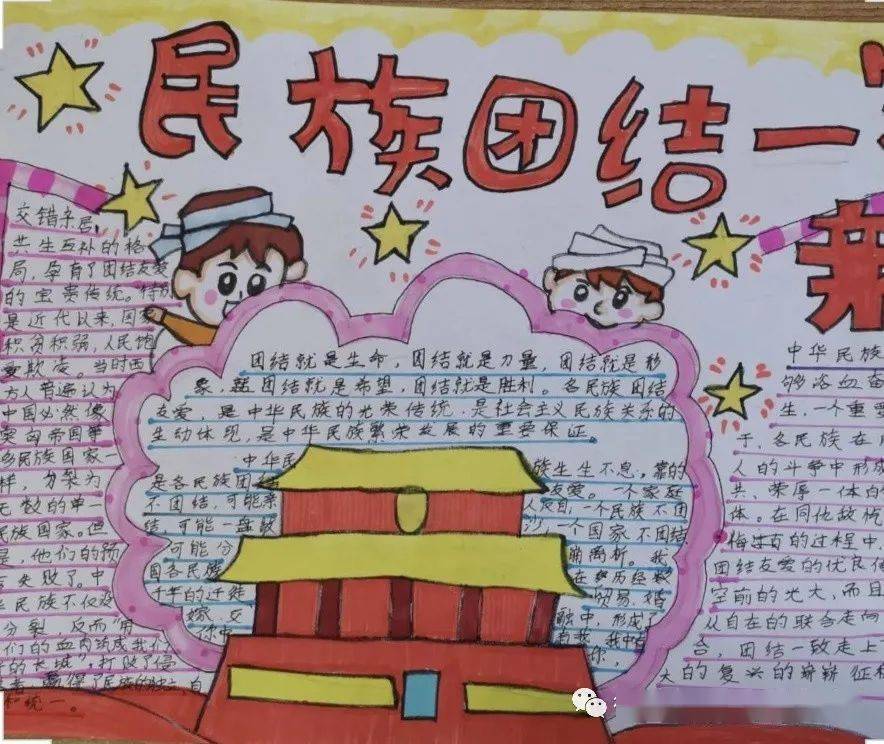 民族团结一
亲
交错亲居,
共生互补的格
局,孕有了团结友爱
的宝贵传统。特别
是近代以来,国家
积贫积弱,人民饱
受欺凌。当时西
方人普遍认为
中国必然像
奥匈帝国等
多民族国家一
样,分裂为
无数的单一
民族国家。但
是,他们的预
言失败了。中
华民族不仅没
分裂,反而"用
我们的血肉筑成我们
的长城",打败了侵
和统一。
团结就是生命,团结就是力量,团结就是形
象,团结就是希望,团结就是胜利。各民族团结
友爱,是中华民族的光荣传统.是社会主义民族关系的
生动体现,是中华民族繁荣发展的重要保证。
中华民族生生不息,靠的
是各民族团结友爱。一个家庭
不团结,可能亲人反目,一个民族不团
结,可能一盘散沙,一个国家不团结
可能分崩离析。我
国各民族在经历经数
千年的迁徙、贸易、婚
嫁、交融中,形成了
中华民族
够浴血奋
生,一个重要
于,各民族在
人的斗争中形成
共、荣辱一体的
体。在同仇敌忾
侮过百的过程中,
团结友爱的优良传
空前的光大,而且
从自在的联合走向
合,团结一致走上
大的复兴的崭崭征程